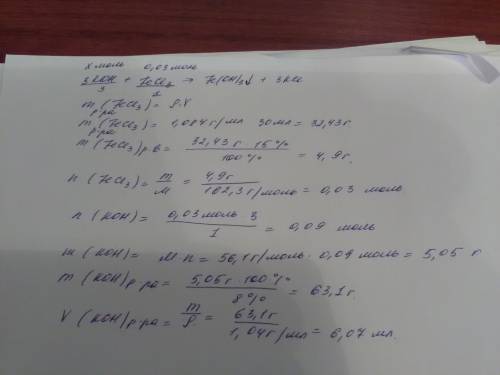 x моль 0,03 моль
3KOH + FeCl₃ → Fe(OH)₃↓ + 3KCl
3 1
m (FeCl₃) = ρ·V
р-ра
m (FeCl₃) = 1,084 г/мл · 30мл = 32,43 г.
р-ра
m (FeCl₃) р.в = 32,43 г · 15% / 100% = 4,9 г.
n (FeCl₃) = m/M = 4,9 г / 162,3 г/моль = 0,03 моль
n (KOH) = 0,03 моль · 3 / 1 = 0,09 моль
m (KOH) = M·n = 56,1 г/моль · 0,09 моль = 5,05 г
m (KOH) р-ра = 5,05 г · 100% / 8% = 63,1 г.
V (KOH) р-ра = m/ρ = 63,1 г / 1,04 г/мл = 6,07 мл.